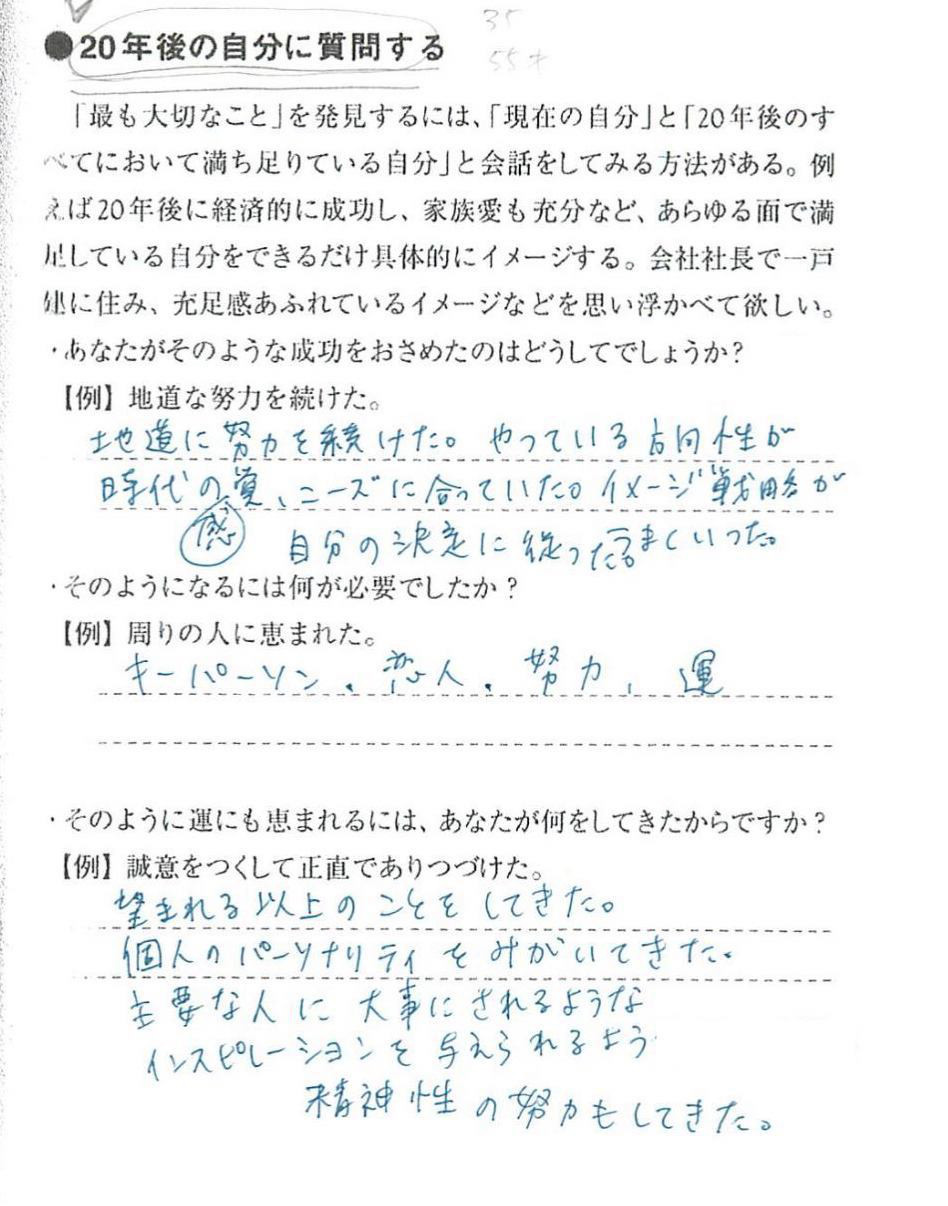 ●20年後の自分に質問する
35
55才
「最も大切なこと」を発見するには、「現在の自分」と「20年後のす
べてにおいて満ち足りている自分」と会話をしてみる方法がある。例
えば20年後に経済的に成功し、家族愛も充分など、あらゆる面で満
足している自分をできるだけ具体的にイメージする。会社社長で一戸
建に住み、充足感あふれているイメージなどを思い浮かべて欲しい。
・あなたがそのような成功をおさめたのはどうしてでしょうか?
【例】地道な努力を続けた。
地道に努力を続けた。やっている方向性が
時代の覚、ニーズに合っていた。イメージ戦略が
感 自分の決定に従った。うまくいった。
・そのようになるには何が必要でしたか?
【例】周りの人に恵まれた。
キーパーソン、恋人、努力、運
・そのように運にも恵まれるには、あなたが何をしてきたからですか?
【例】誠意をつくして正直でありつづけた。
望まれる以上のことをしてきた。
個人のパーソナリティをみがいてきた。
主要な人に大事にされるような
インスピレーションを与えられるよう
精神性の努力もしてきた。